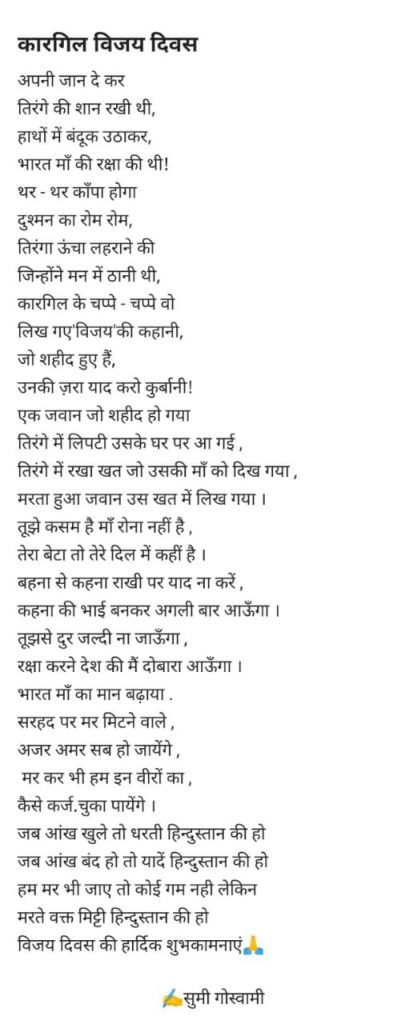 कारगिल विजय दिवस
अपनी जान दे कर
तिरंगे की शान रखी थी,
हाथों में बंदूक उठाकर,
भारत माँ की रक्षा की थी!
थर - थर काँपा होगा
दुश्मन का रोम रोम,
तिरंगा ऊंचा लहराने की
जिन्होंने मन में ठानी थी,
कारगिल के चप्पे - चप्पे वो
लिख गए'विजय'की कहानी,
जो शहीद हुए हैं,
उनकी ज़रा याद करो कुर्बानी!
एक जवान जो शहीद हो गया
तिरंगे में लिपटी उसके घर पर आ गई ,
तिरंगे में रखा खत जो उसकी माँ को दिख गया ,
मरता हुआ जवान उस खत में लिख गया ।
तूझे कसम है माँ रोना नहीं है ,
तेरा बेटा तो तेरे दिल में कहीं है ।
बहना से कहना राखी पर याद ना करें ,
कहना की भाई बनकर अगली बार आऊँगा ।
तूझसे दुर जल्दी ना जाऊँगा ,
रक्षा करने देश की मैं दोबारा आऊँगा ।
भारत माँ का मान बढ़ाया .
सरहद पर मर मिटने वाले ,
अजर अमर सब हो जायेंगे ,
मर कर भी हम इन वीरों का ,
कैसे कर्ज.चुका पायेंगे ।
जब आंख खुले तो धरती हिन्दुस्तान की हो
जब आंख बंद हो तो यादें हिन्दुस्तान की हो
हम मर भी जाए तो कोई गम नही लेकिन
मरते वक्त मिट्टी हिन्दुस्तान की हो
विजय दिवस की हार्दिक शुभकामनाएं🙏
✍️सुमी गोस्वामी